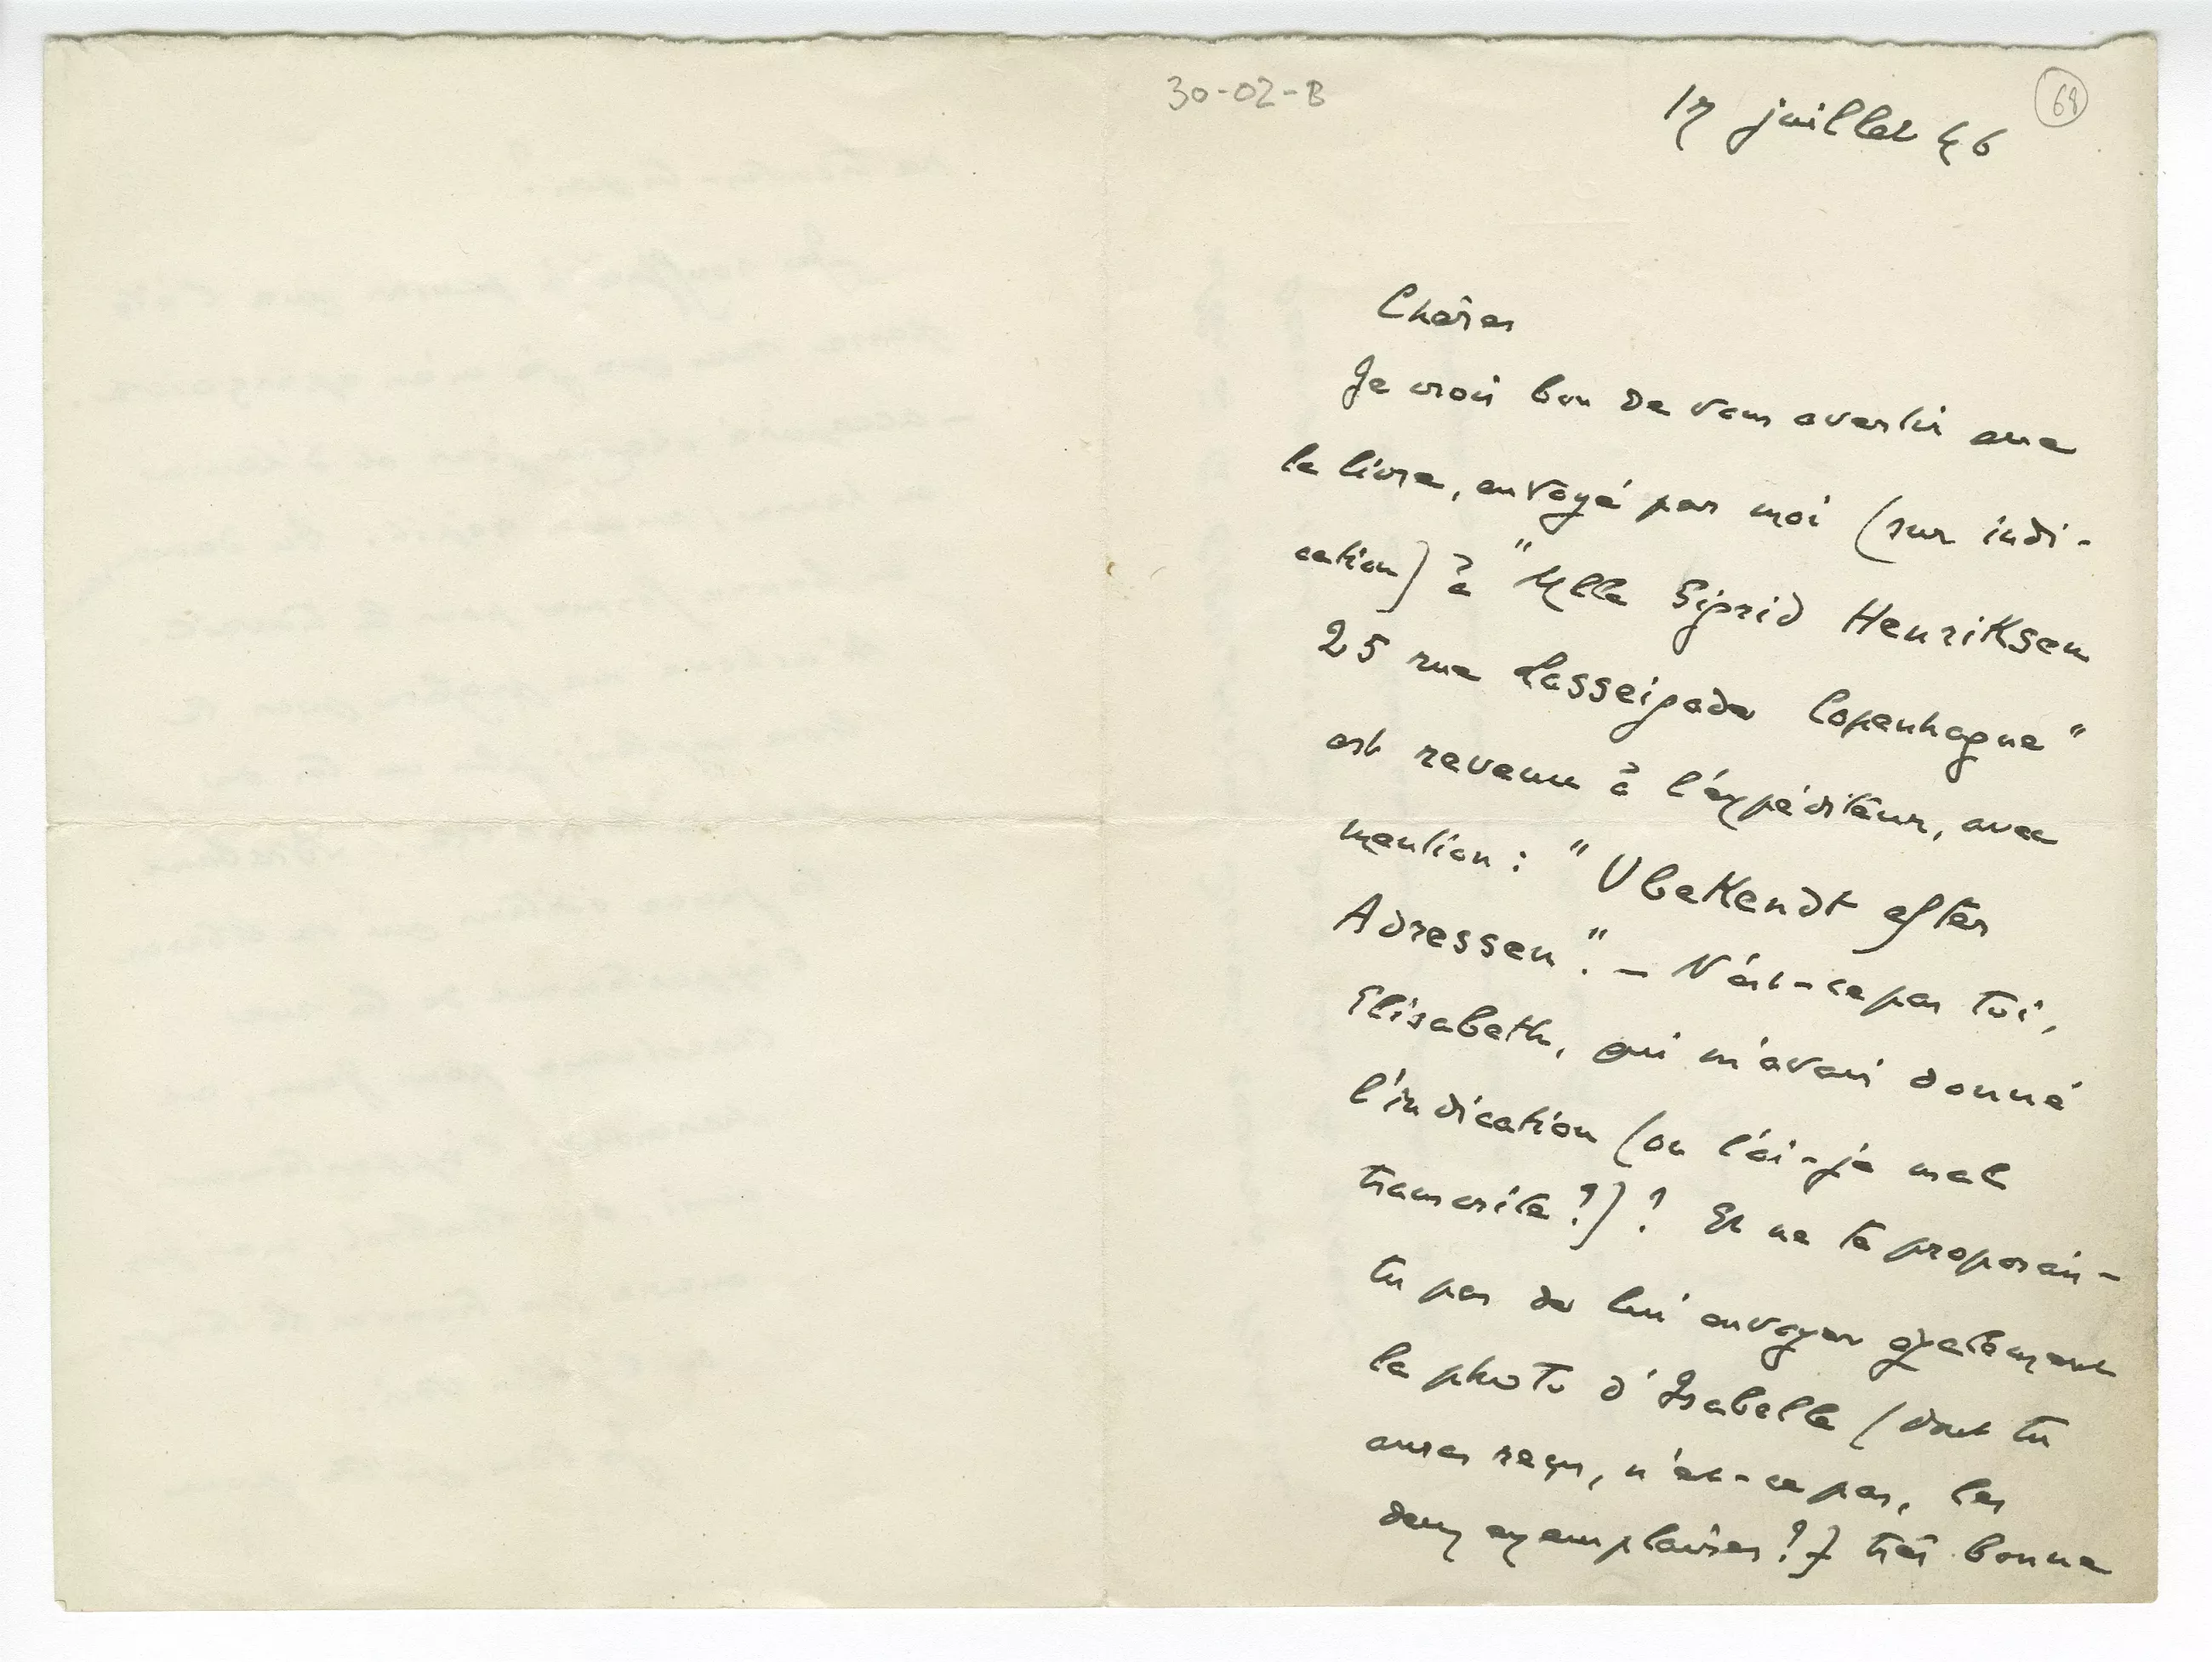 30-02-B
17 juillet 46
Chères
Je crois bon de vous avertir que
le livre, envoyé par moi (sur indi-
cation) à "Mlle Sigrid Henriksen
25 rue Lasseigade Copenhague"
est revenu à l'expéditeur, avec
mention : "Ubekendt efter
Adressen". – N'est-ce pas toi,
Elisabeth, qui m'avais donné
l'indication (ou l'ai-je mal
transcrite ?) ? Et ne te proposais-
tu pas de lui envoyer également
la photo d'Isabelle (dont tu
auras reçu, n'est-ce pas, les
deux exemplaires ?) très bonne